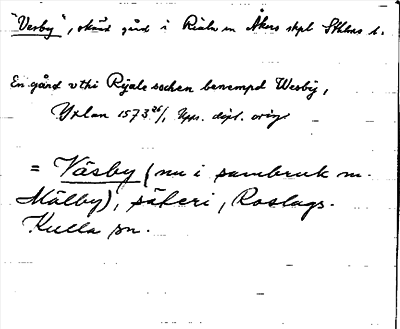 "Vesby", okänd gård i Riala sn Åkers skpl Sthlms l.
En gård vthi Rijale sochen benempd Wesby,
Yxlan 1573 26/1, Upps. dipl. orig.
= Väsby (nu i sambruk m.
Mälby), säteri, Roslags-
Kulla sn.